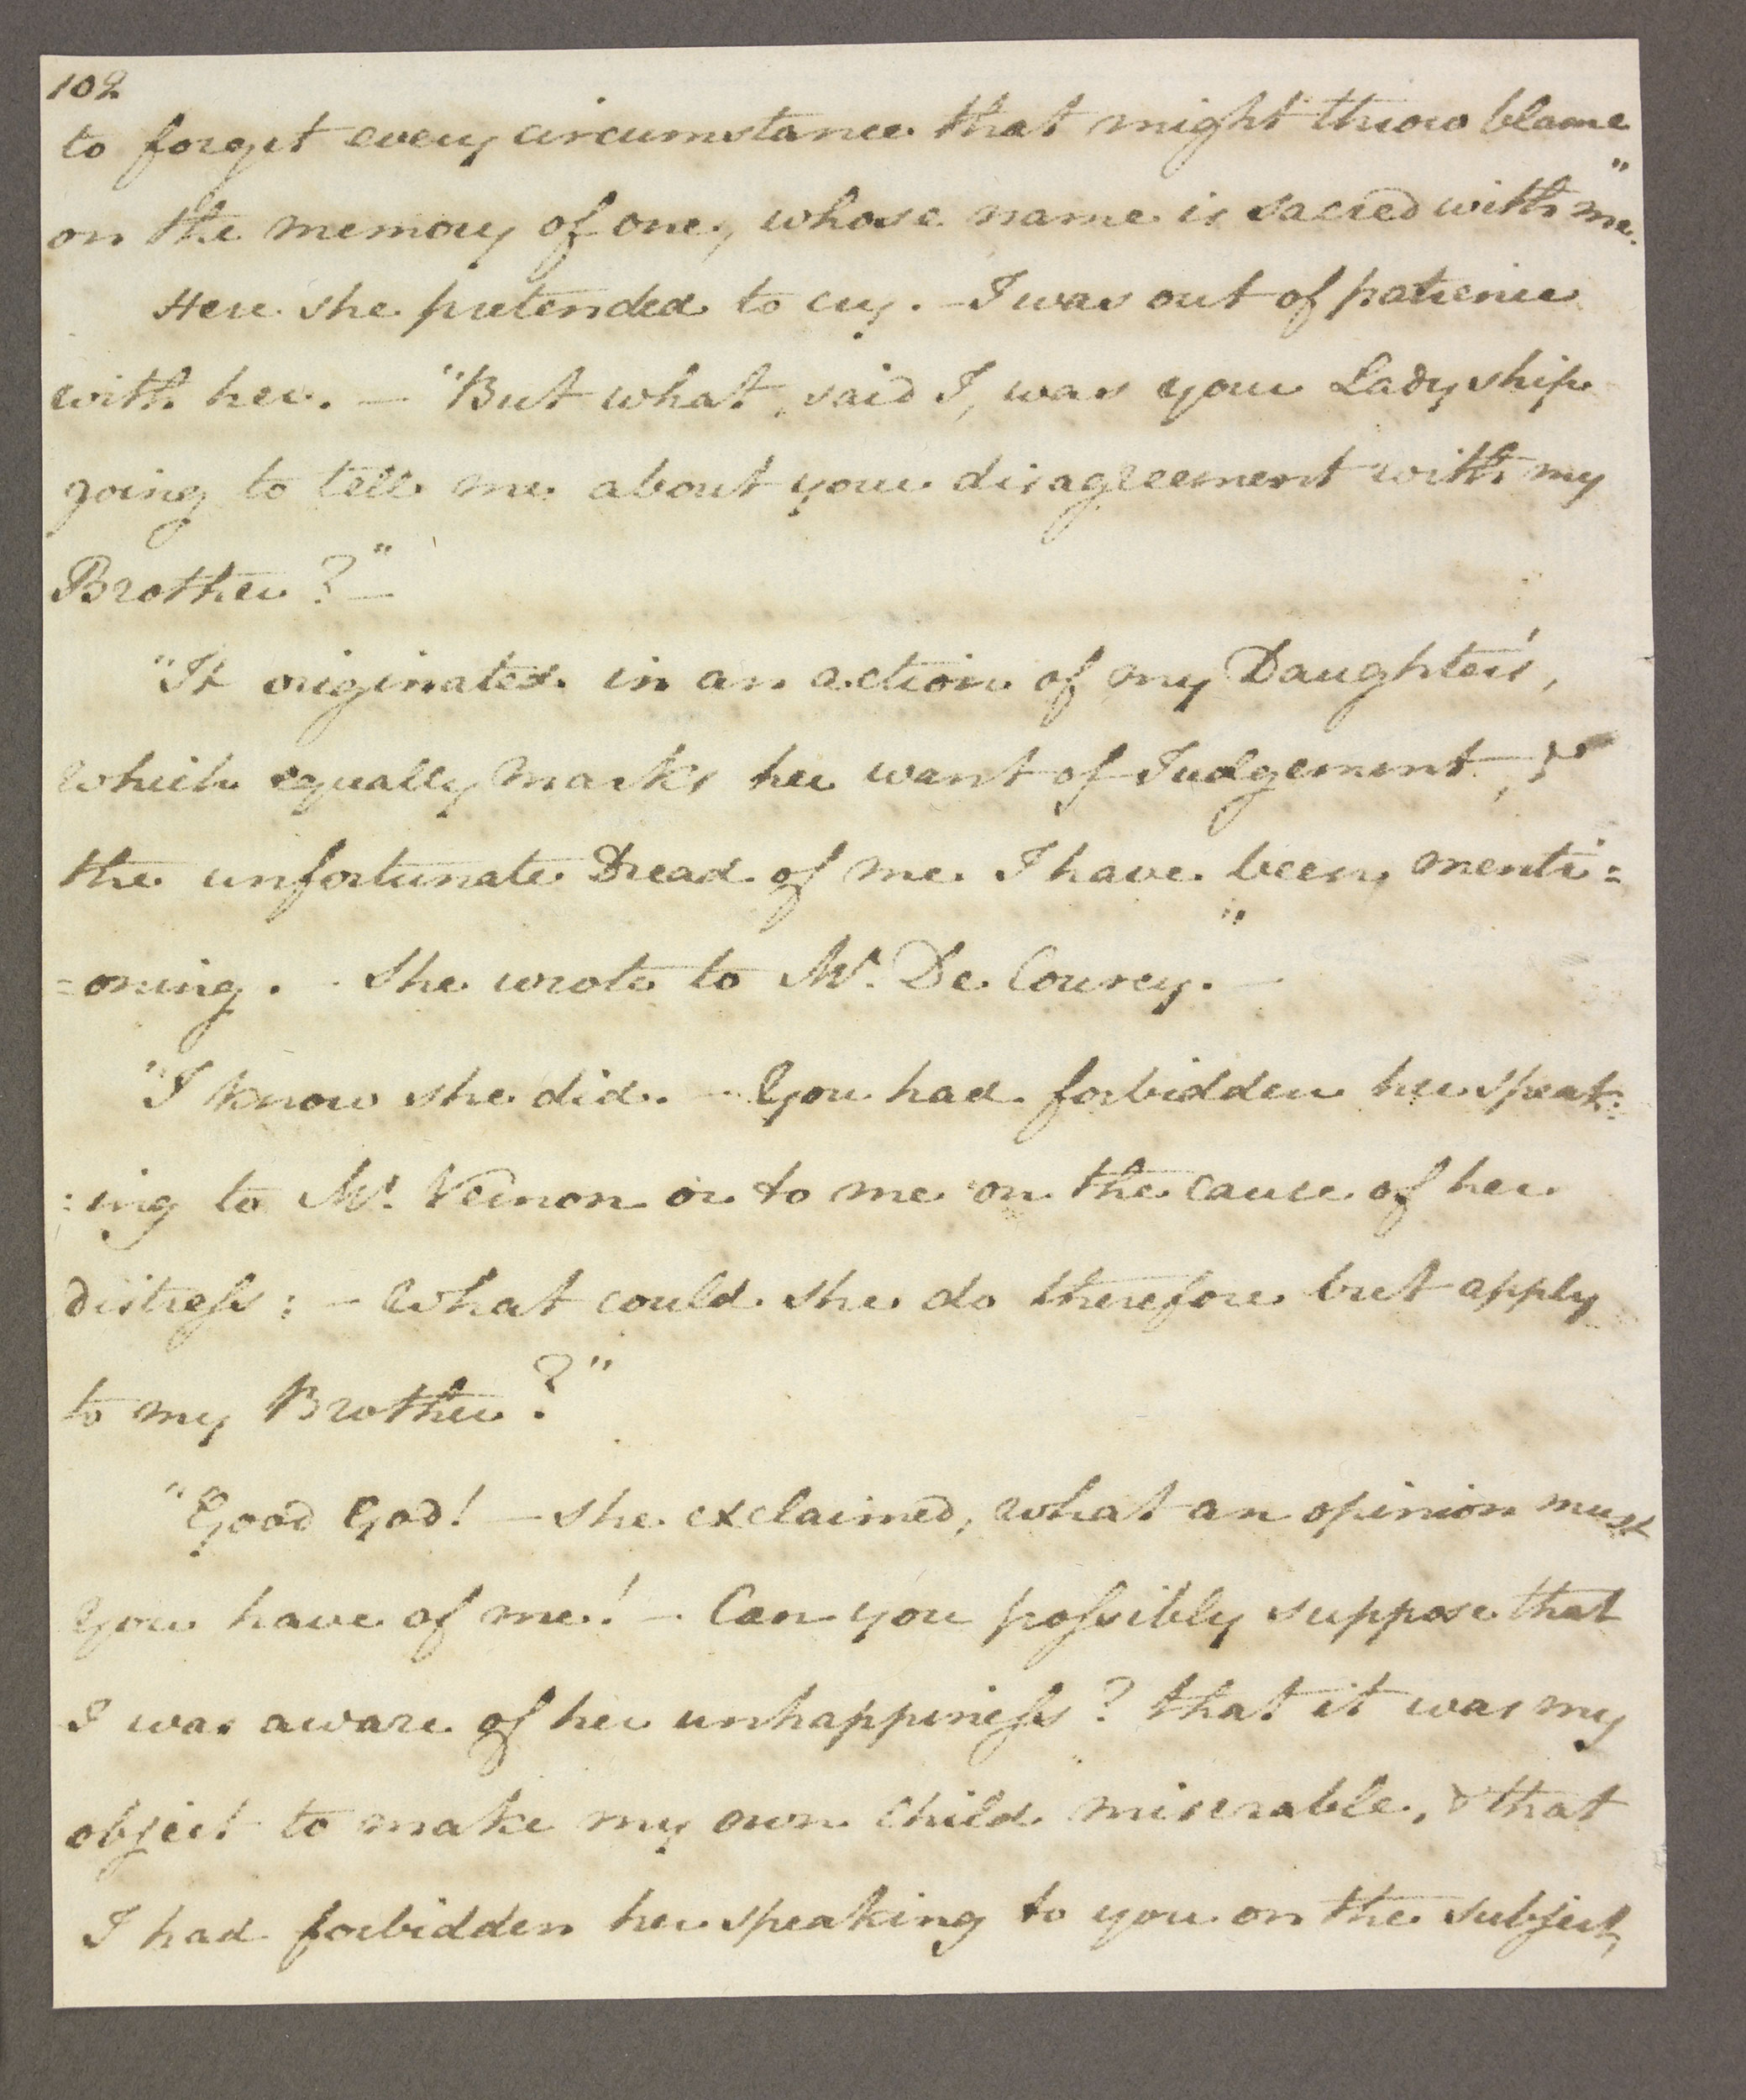 102
to forget every circumstance that might throw blame
on the memory of one, whose name is sacred with me."
Here she pretended to cry. - I was out of patience
with her. — "But what, said I, was your Ladyship
going to tell me about your disagreement with my
Brother?" —
"It originated in an action of my Daughter's,
which equally marks her want of Judgement, &
the unfortunate Dread of me I have been menti=
=oning. - She wrote to Mr. De Courcy." —
"I know she did. - You had forbidden her speak:
:ing to Mr. Vernon or to me on the cause of her
distreſs; - what could she do therefore but apply
to my Brother?"
"Good God! - she exclaimed, what an opinion must
you have of me! - Can you poſsibly suppose that
I was aware of her unhappineſs? that it was my
object to make my own child miserable, & that
I had forbidden her speaking to you on the subject,